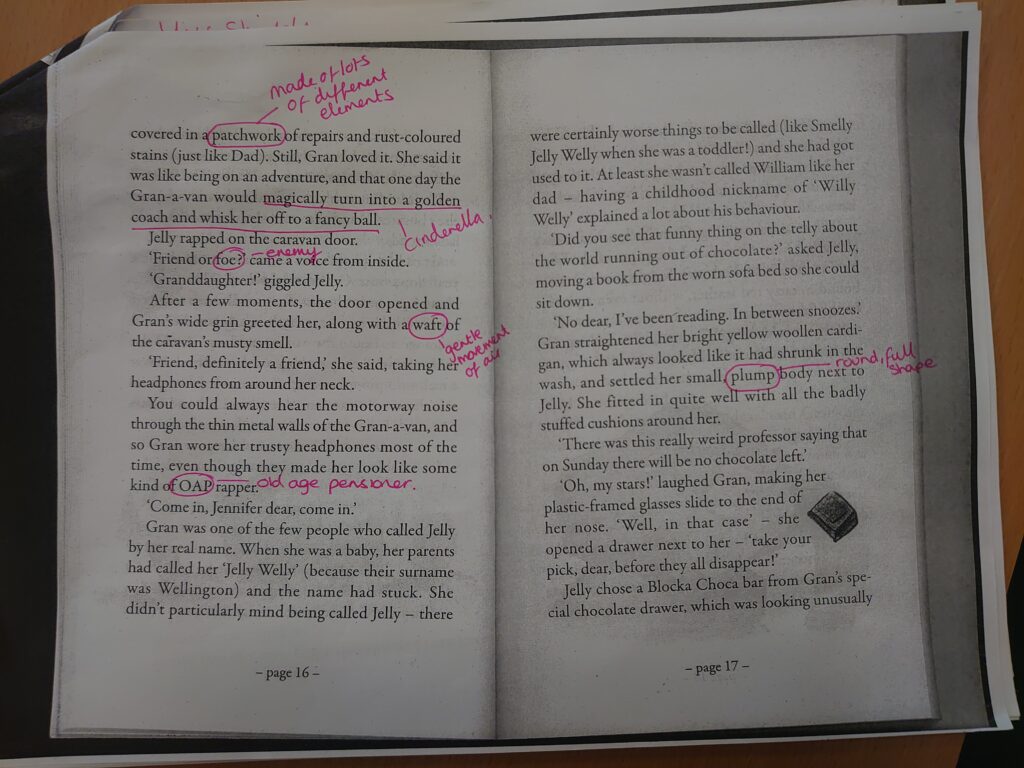 made of lots
of different
elements
covered in a patchwork of repairs and rust-coloured
stains (just like Dad). Still, Gran loved it. She said it
was like being on an adventure, and that one day the
Gran-a-van would magically turn into a golden
coach and whisk her off to a fancy ball.
Cinderella.
Jelly rapped on the caravan door.
‘Friend or foe?’ came a voice from inside.
enemy
‘Granddaughter!’ giggled Jelly.
After a few moments, the door opened and
Gran’s wide grin greeted her, along with a waft of
the caravan’s musty smell.
gentle
movement
of air
‘Friend, definitely a friend,’ she said, taking her
headphones from around her neck.
You could always hear the motorway noise
through the thin metal walls of the Gran-a-van, and
so Gran wore her trusty headphones most of the
time, even though they made her look like some
kind of OAP rapper.
old age pensioner.
‘Come in, Jennifer dear, come in.’
Gran was one of the few people who called Jelly
by her real name. When she was a baby, her parents
had called her ‘Jelly Welly’ (because their surname
was Wellington) and the name had stuck. She
didn’t particularly mind being called Jelly – there
– page 16 –
were certainly worse things to be called (like Smelly
Jelly Welly when she was a toddler!) and she had got
used to it. At least she wasn’t called William like her
dad – having a childhood nickname of ‘Willy
Welly’ explained a lot about his behaviour.
‘Did you see that funny thing on the telly about
the world running out of chocolate?’ asked Jelly,
moving a book from the worn sofa bed so she could
sit down.
‘No dear, I’ve been reading. In between snoozes.’
Gran straightened her bright yellow woollen cardi-
gan, which always looked like it had shrunk in the
wash, and settled her small, plump body next to
round, full
shape
Jelly. She fitted in quite well with all the badly
stuffed cushions around her.
‘There was this really weird professor saying that
on Sunday there will be no chocolate left.’
‘Oh, my stars!’ laughed Gran, making her
plastic-framed glasses slide to the end of
her nose. ‘Well, in that case’ – she
opened a drawer next to her – ‘take your
pick, dear, before they all disappear!’
Jelly chose a Blocka Choca bar from Gran’s spe-
cial chocolate drawer, which was looking unusually
– page 17 –